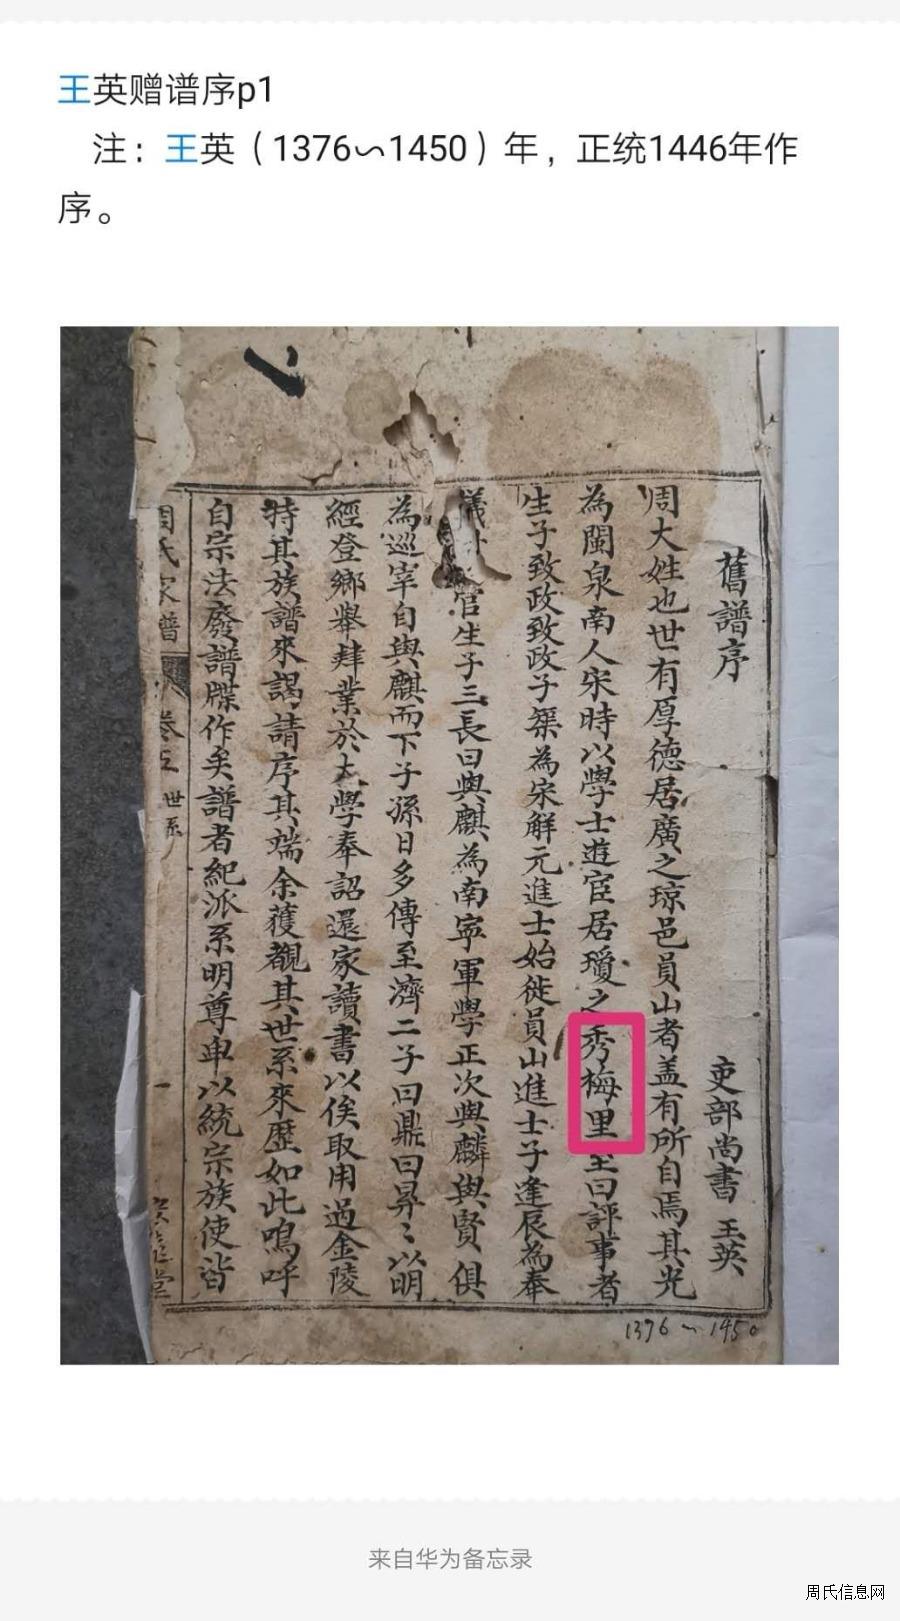 王英赠谱序p1
注：王英（1376∽1450）年，正统1446年作
序。
舊譜序
吏部尚書 王英
周大姓也世有厚德居廣之琼邑員山者盖有所自焉其先
為閩泉南人宋時以學士遊宦居瓊之秀梅里至曰評事者
生子致政致政子榘為宋解元進士始徙員山進士子逢辰為奉
議 官生子三長曰興麒為南寧軍學正次興麟興賢俱
為巡宰自興麒而下子孫日多傳至濟二子曰鼎曰昇〻以明
經登鄉舉肄業於太學奉詔還家讀書以俟取用過金陵
特其族譜來謁請序其端余獲覩其世系來歷如此嗚呼
自宗法廢譜牒作矣譜者紀派系明尊卑以統宗族使皆
周氏家譜
卷之
世系
一
堂
1376～1450
来自华为备忘录
周氏信息网